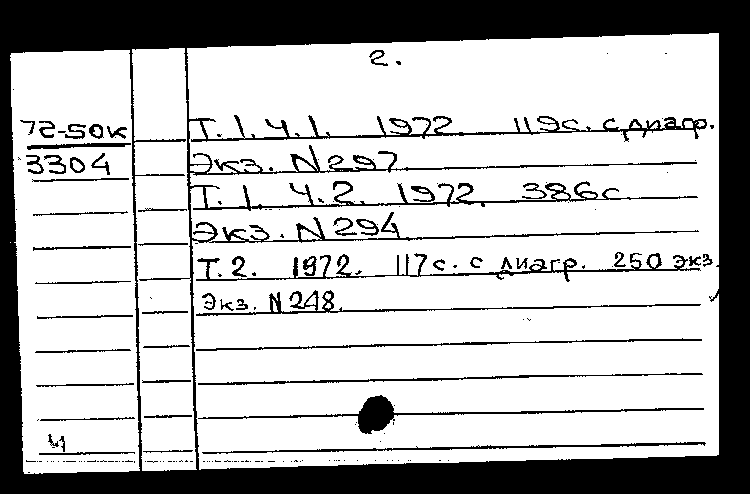 2.
72-50к
3304
Т. 1. Ч. 1. 1972. 119с. с диагр.
Экз. N297.
Т. 1. Ч. 2. 1972. 386с.
Экз. N294
Т. 2. 1972. 117с. с диагр. 250 экз.
Экз. N248.